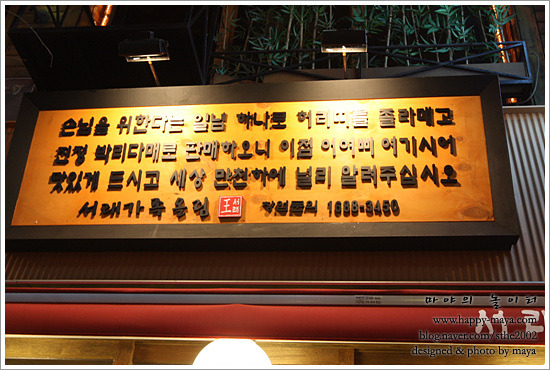 손님을 위한다는 일념 하나로 허리띠를 졸라메고
박리다매로 판매하오니 이점 어여삐 여기시어
맛있게 드시고 세상 만천하에 널리 알려주십시오
서래가 王 서래 1688-3450
마야의 놀이터
www.happy-maya.com
서래
blog.naver.com/sthe2002
designed & photo by maya